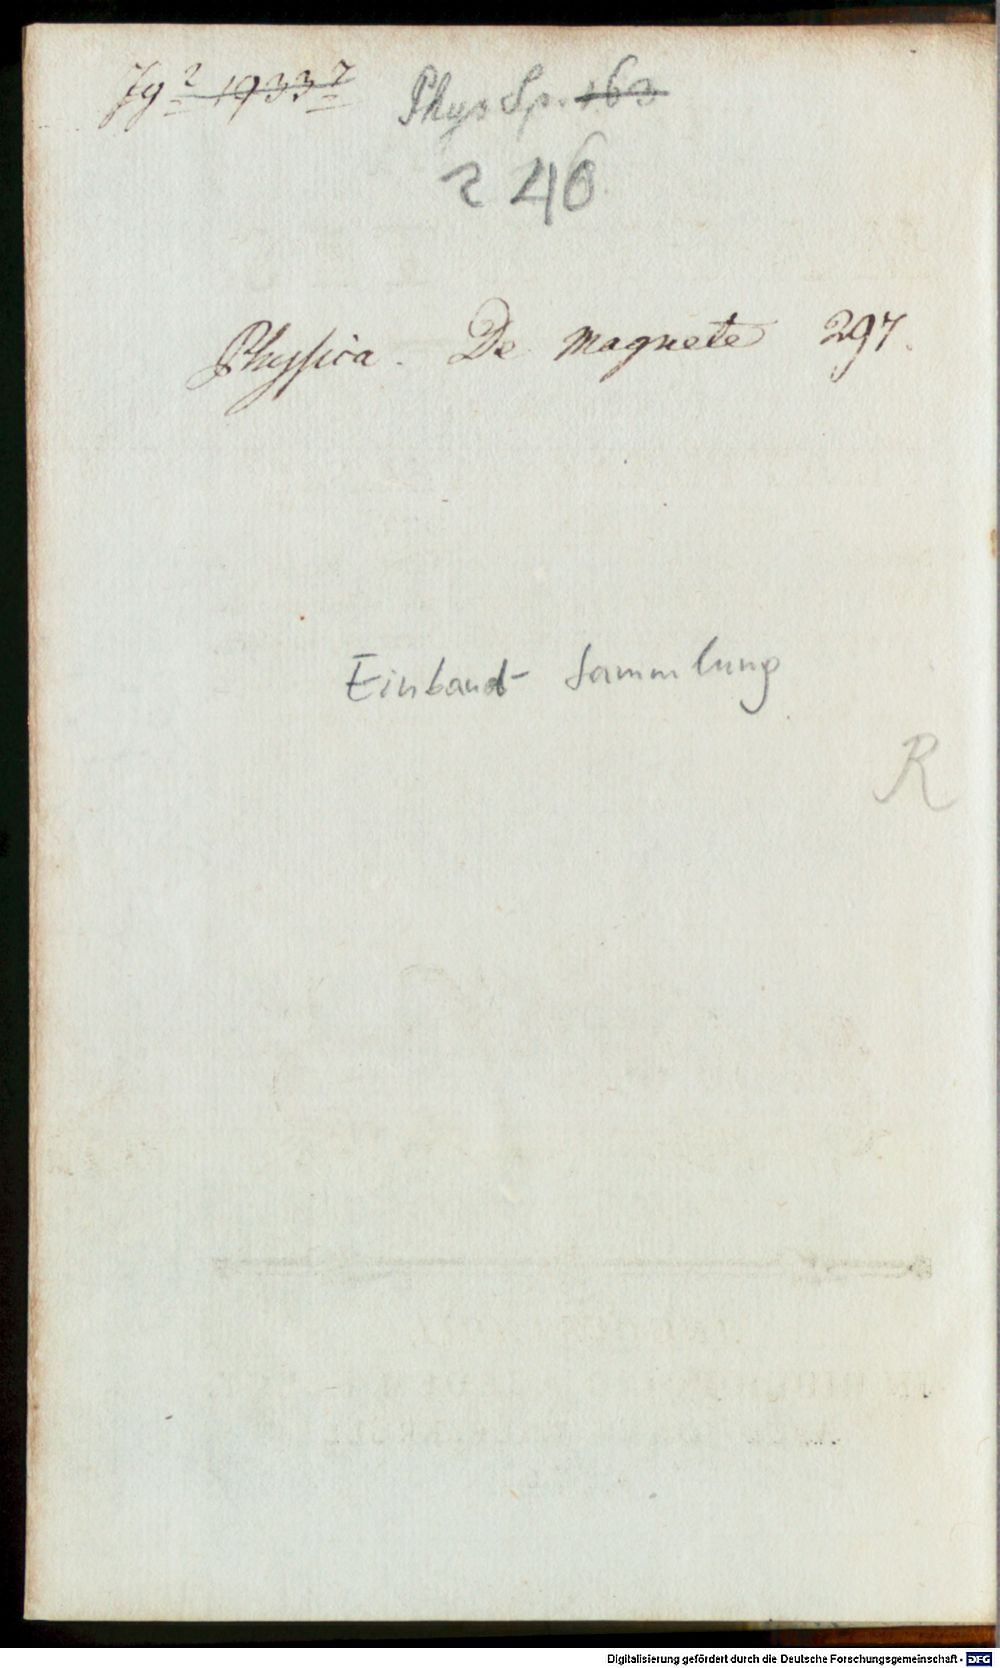 Phys. Sp. 163
246
Physica. De Magnete 297.
Einband-Sammlung
R
Digitalisierung gefördert durch die Deutsche Forschungsgemeinschaft - DFG